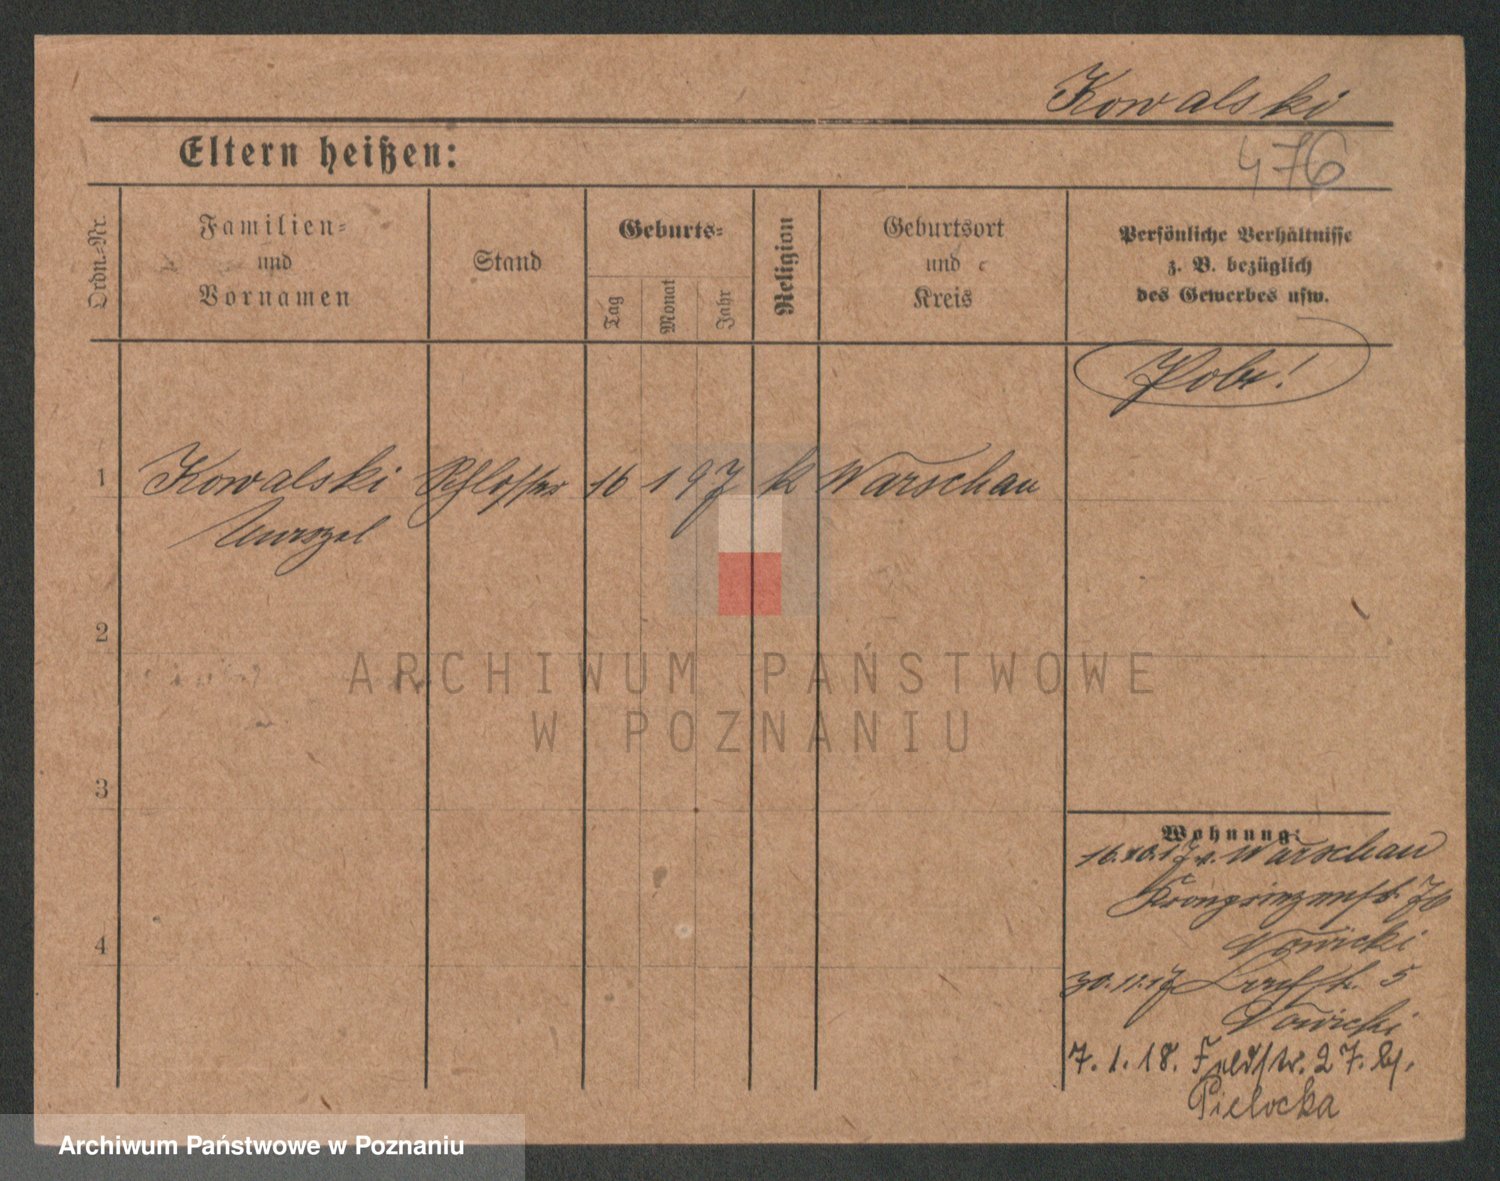 Kowalski
Eltern heißen:
476
Ordn.-Nr.
Familien-
und
Vornamen
Stand
Geburts-
Tag
Monat
Jahr
Religion
Geburtsort
und
Kreis
Persönliche Verhältnisse
z. B. bezüglich
des Gewerbes usw.
1
Kowalski Schlosser 16 1 97 k Warschau
2
3
4
ARCHIWUM PAŃSTWOWE
W POZNANIU
Wohnung:
16.10.17 v. Warschau
Kronprinzenstr. 76
Nowicki
30.11.17 5
Nowicki
7.1.18. Feldstr. 27. bj.
Pielocka
Archiwum Państwowe w Poznaniu